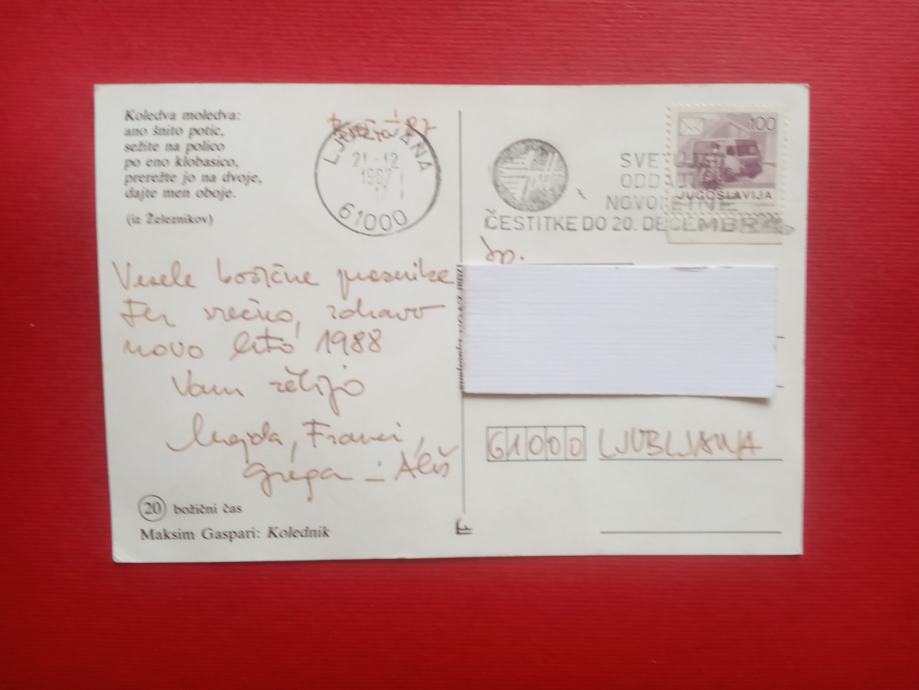 Koledva moledva:
ano šnito potic,
sežite na polico
po eno klobasico,
prerežte jo na dvoje,
dajte men oboje.
(iz Železnikov)
LJUBLJANA
21-12
1987
61000
100
JUGOSLAVIJA
NOVOLETNE
ČESTITKE DO 20. DECEMBRA
Vesele božične praznike
ter srečno, zdravo
novo leto 1988
Vam želijo
Magda, Franci,
Grega - Aleš
61000 LJUBLJANA
20 božični čas
Maksim Gaspari: Kolednik